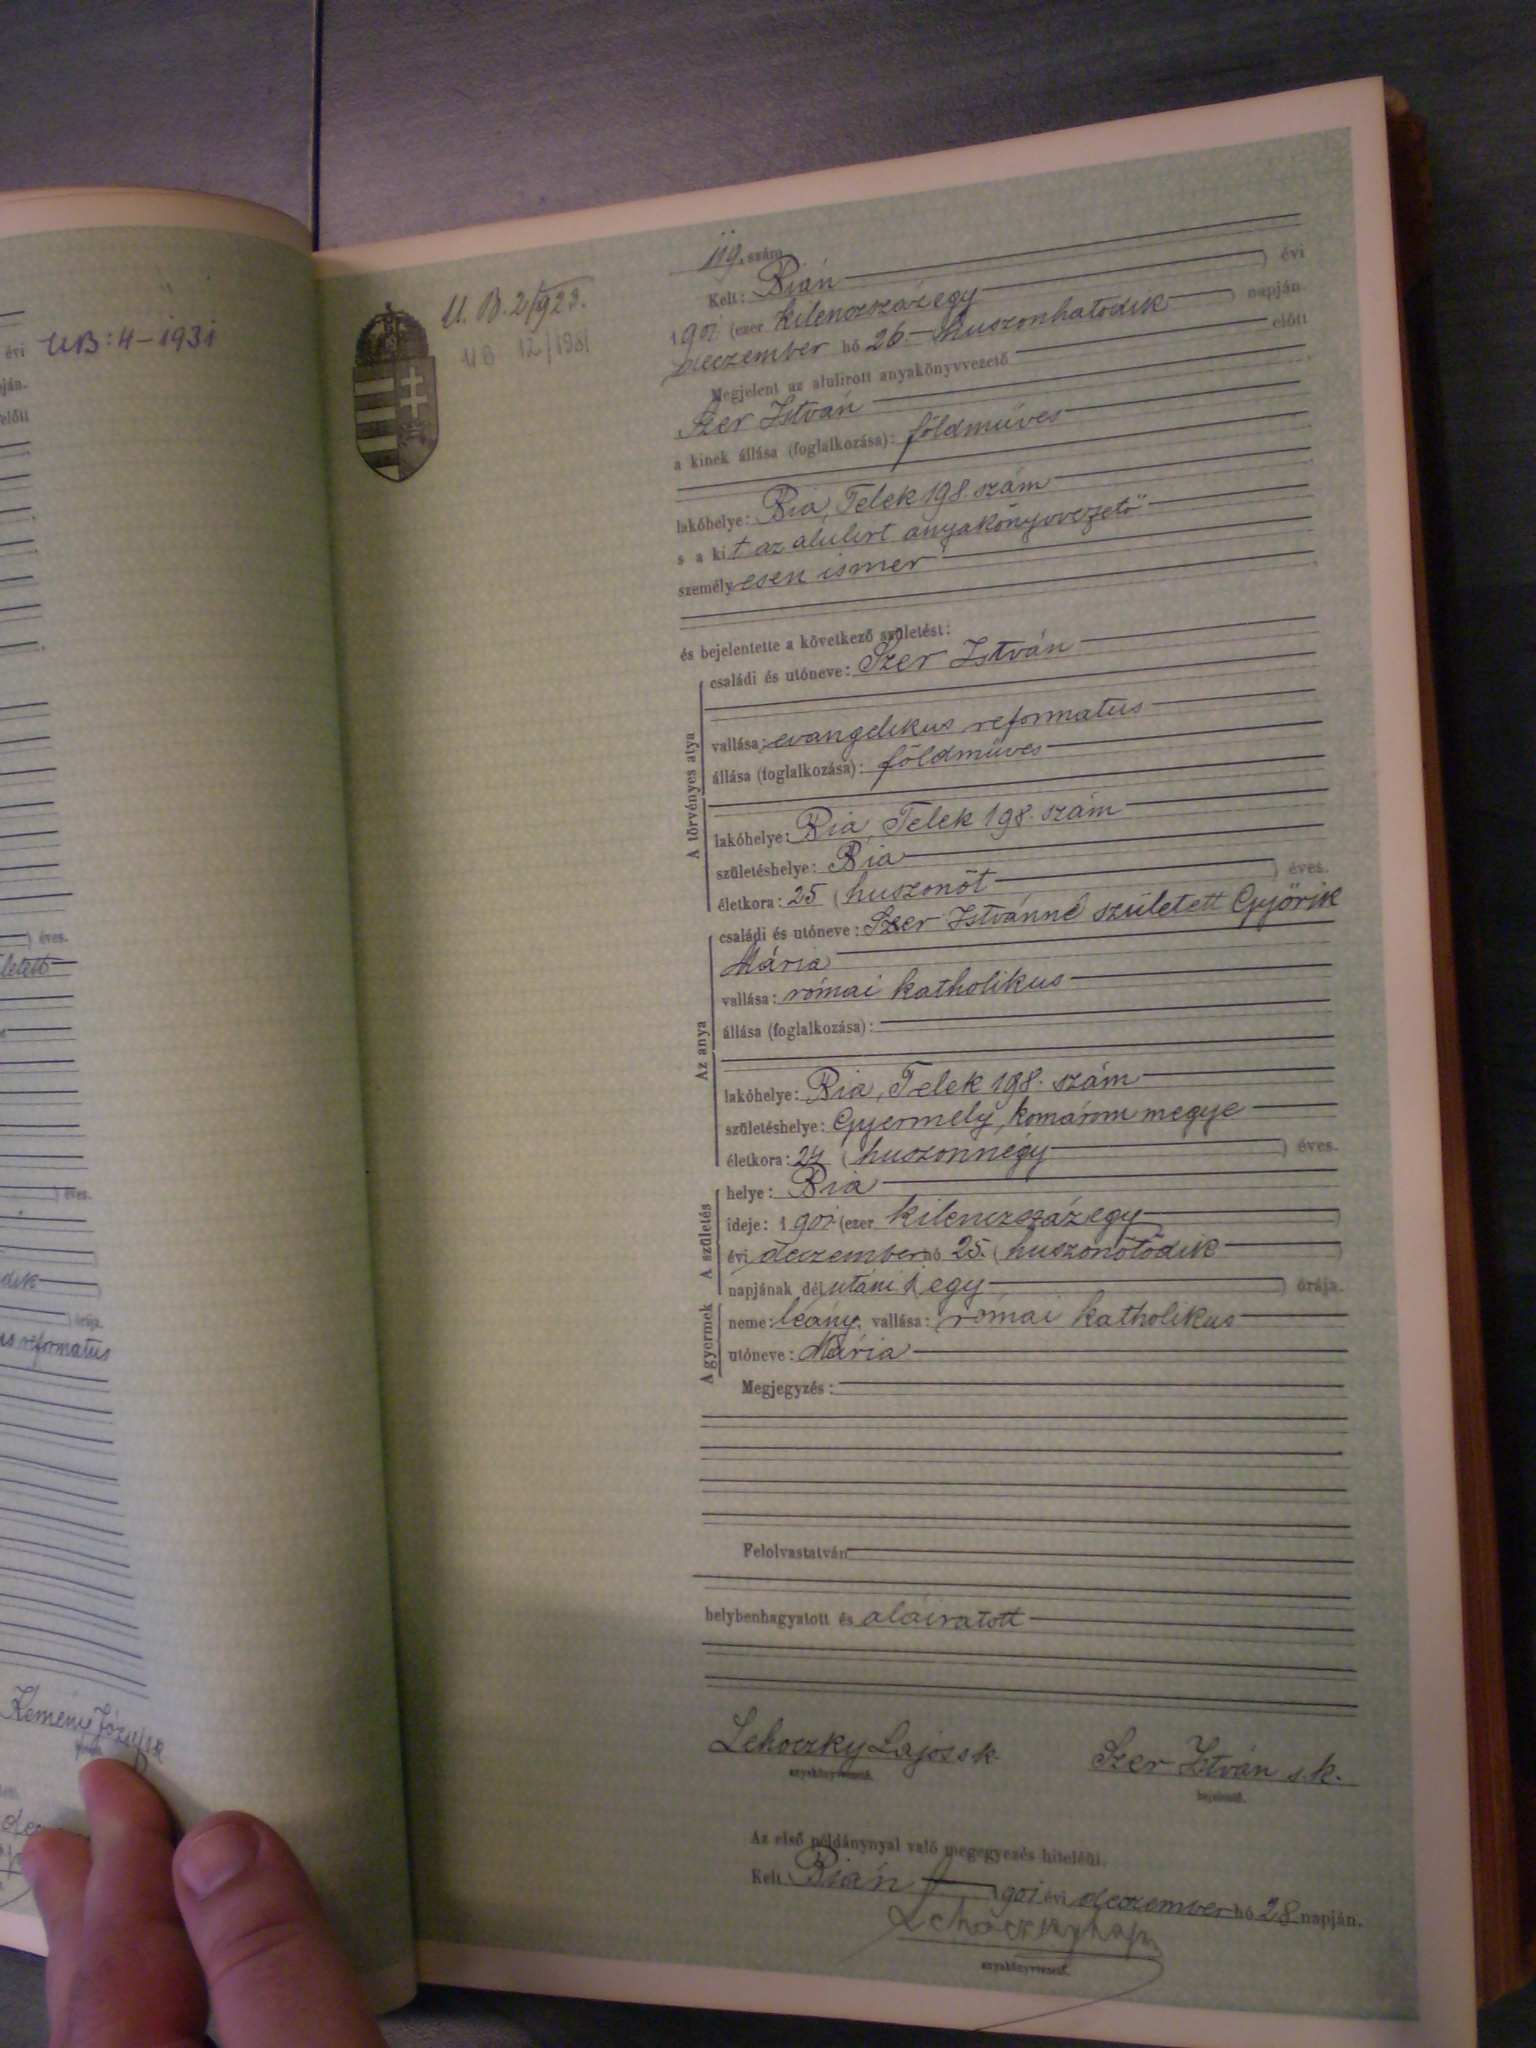 évi UB: 4 - 1931
ján.
előtt
) éves.
letett
) éves.
dik
) órája.
us reformatus
Kemény József
U. B. 2/923.
UB 12/1981
119. szám
Kelt: Bián
1901 (ezer kilenczszázegy ) évi
deczember hó 26. huszonhatodik ) napján.
Megjelent az alulirott anyakönyvvezető előtt
Szer István
a kinek állása (foglalkozása): földmüves
lakóhelye: Bia, Telek 198. szám
s a kit az alulirt anyakönyvvezető
személyesen ismer
és bejelentette a következő születést:
A törvényes atya
családi és utóneve: Szer István
vallása: evangelikus reformatus
állása (foglalkozása): földmüves
lakóhelye: Bia, Telek 198. szám
születéshelye: Bia
életkora: 25 (huszonöt ) éves.
Az anya
családi és utóneve: Szer Istvánné született Győrik
Mária
vallása: római katholikus
állása (foglalkozása):
lakóhelye: Bia, Telek 198. szám
születéshelye: Gyermely, komárom megye
életkora: 24 (huszonnégy ) éves.
A születés
helye: Bia
ideje: 1901 (ezer kilenczszázegy )
évi deczember hó 25. (huszonötödik )
napjának délutáni 1 (egy ) órája.
A gyermek
neme: leány, vallása: római katholikus
utóneve: Mária
Megjegyzés:
Felolvastatván
helybenhagyatott és aláiratott
Lehoczky Lajos sk. Szer István s.k.
anyakönyvvezető. bejelentő.
Az első példánynyal való megegyezés hiteléül.
Kelt Bián 1901 évi deczember hó 28 napján.
Lehoczky Lajos
anyakönyvvezető.